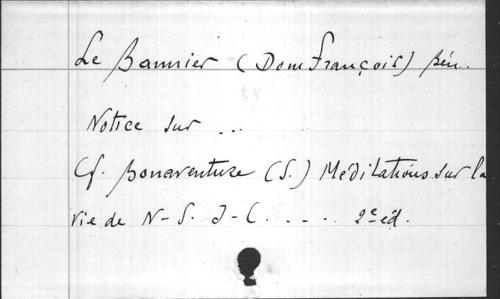 Le Bannier (Dom François) bén.
Notice sur ...
Cf. Bonaventure (S.) Méditations sur la
vie de N-S. J-C. .... 2e éd.